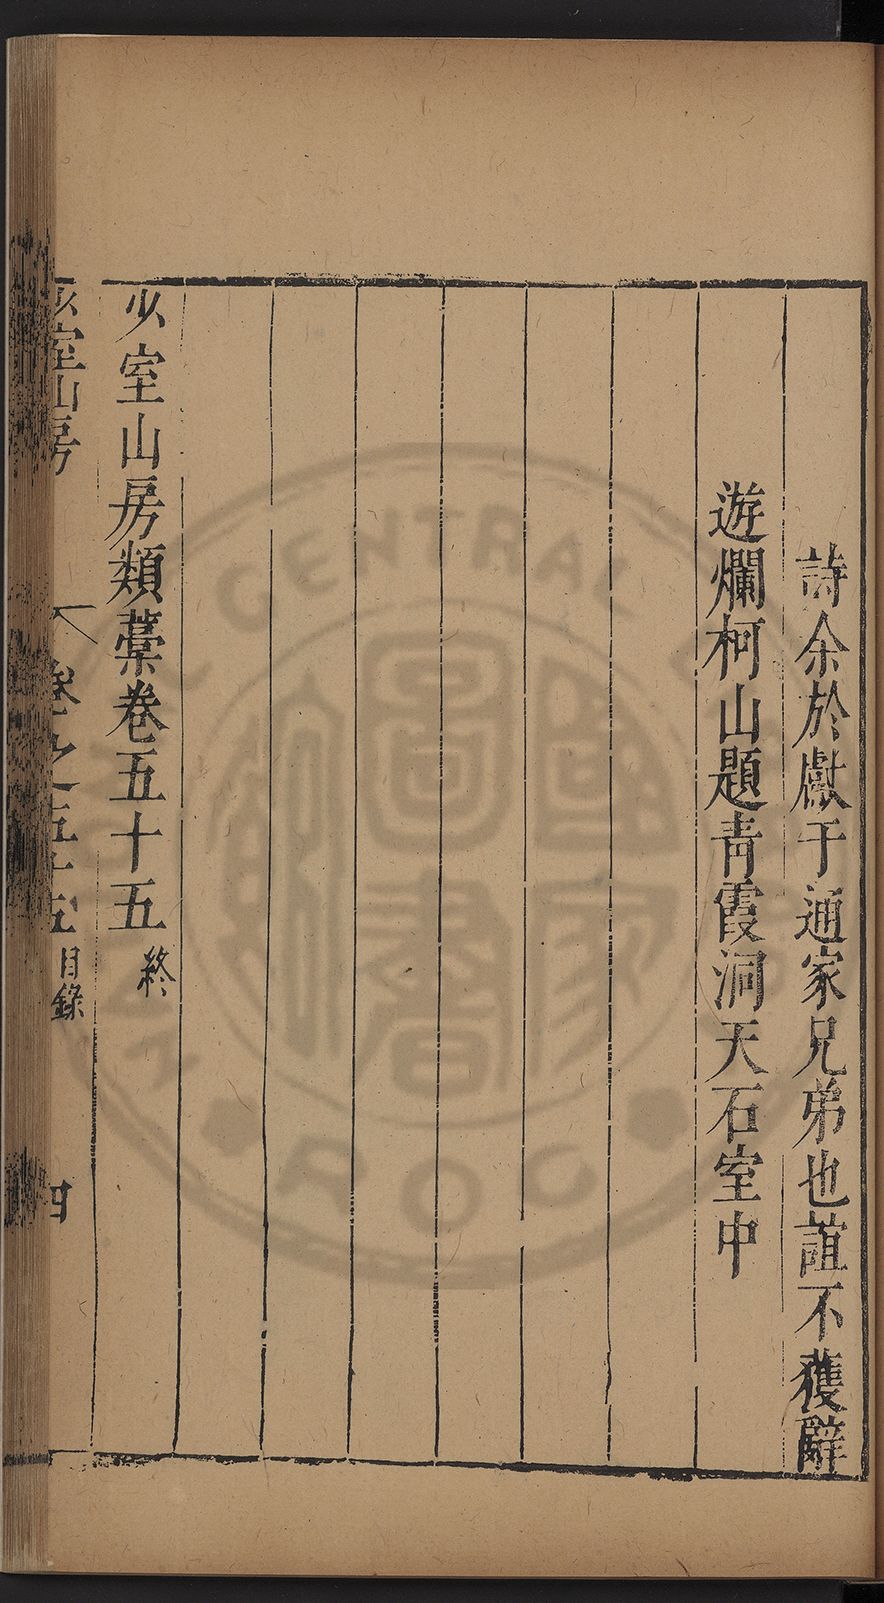 詩余於獻于通家兄弟也誼不獲辭
遊爛柯山題青霞洞天石室中
少室山房類藁卷五十五終
少室山房 卷之五十五目錄 四
國家圖書館
CENTRAL
ROC